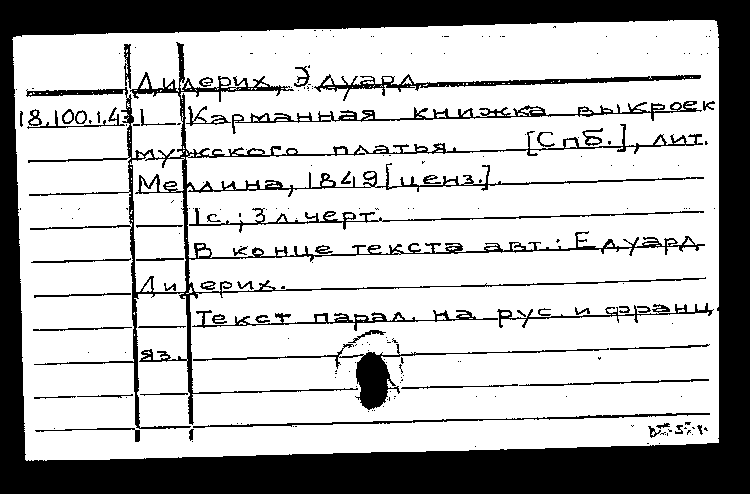 Дидерих, Эдуард
18.100.1.431 Карманная книжка выкроек
мужского платья. [Спб.], лит.
Меллина, 1849 [ценз.].
1 с.; 3 л. черт.
В конце текста авт.: Едуард
Дидерих.
Текст парал. на рус. и франц.
яз.